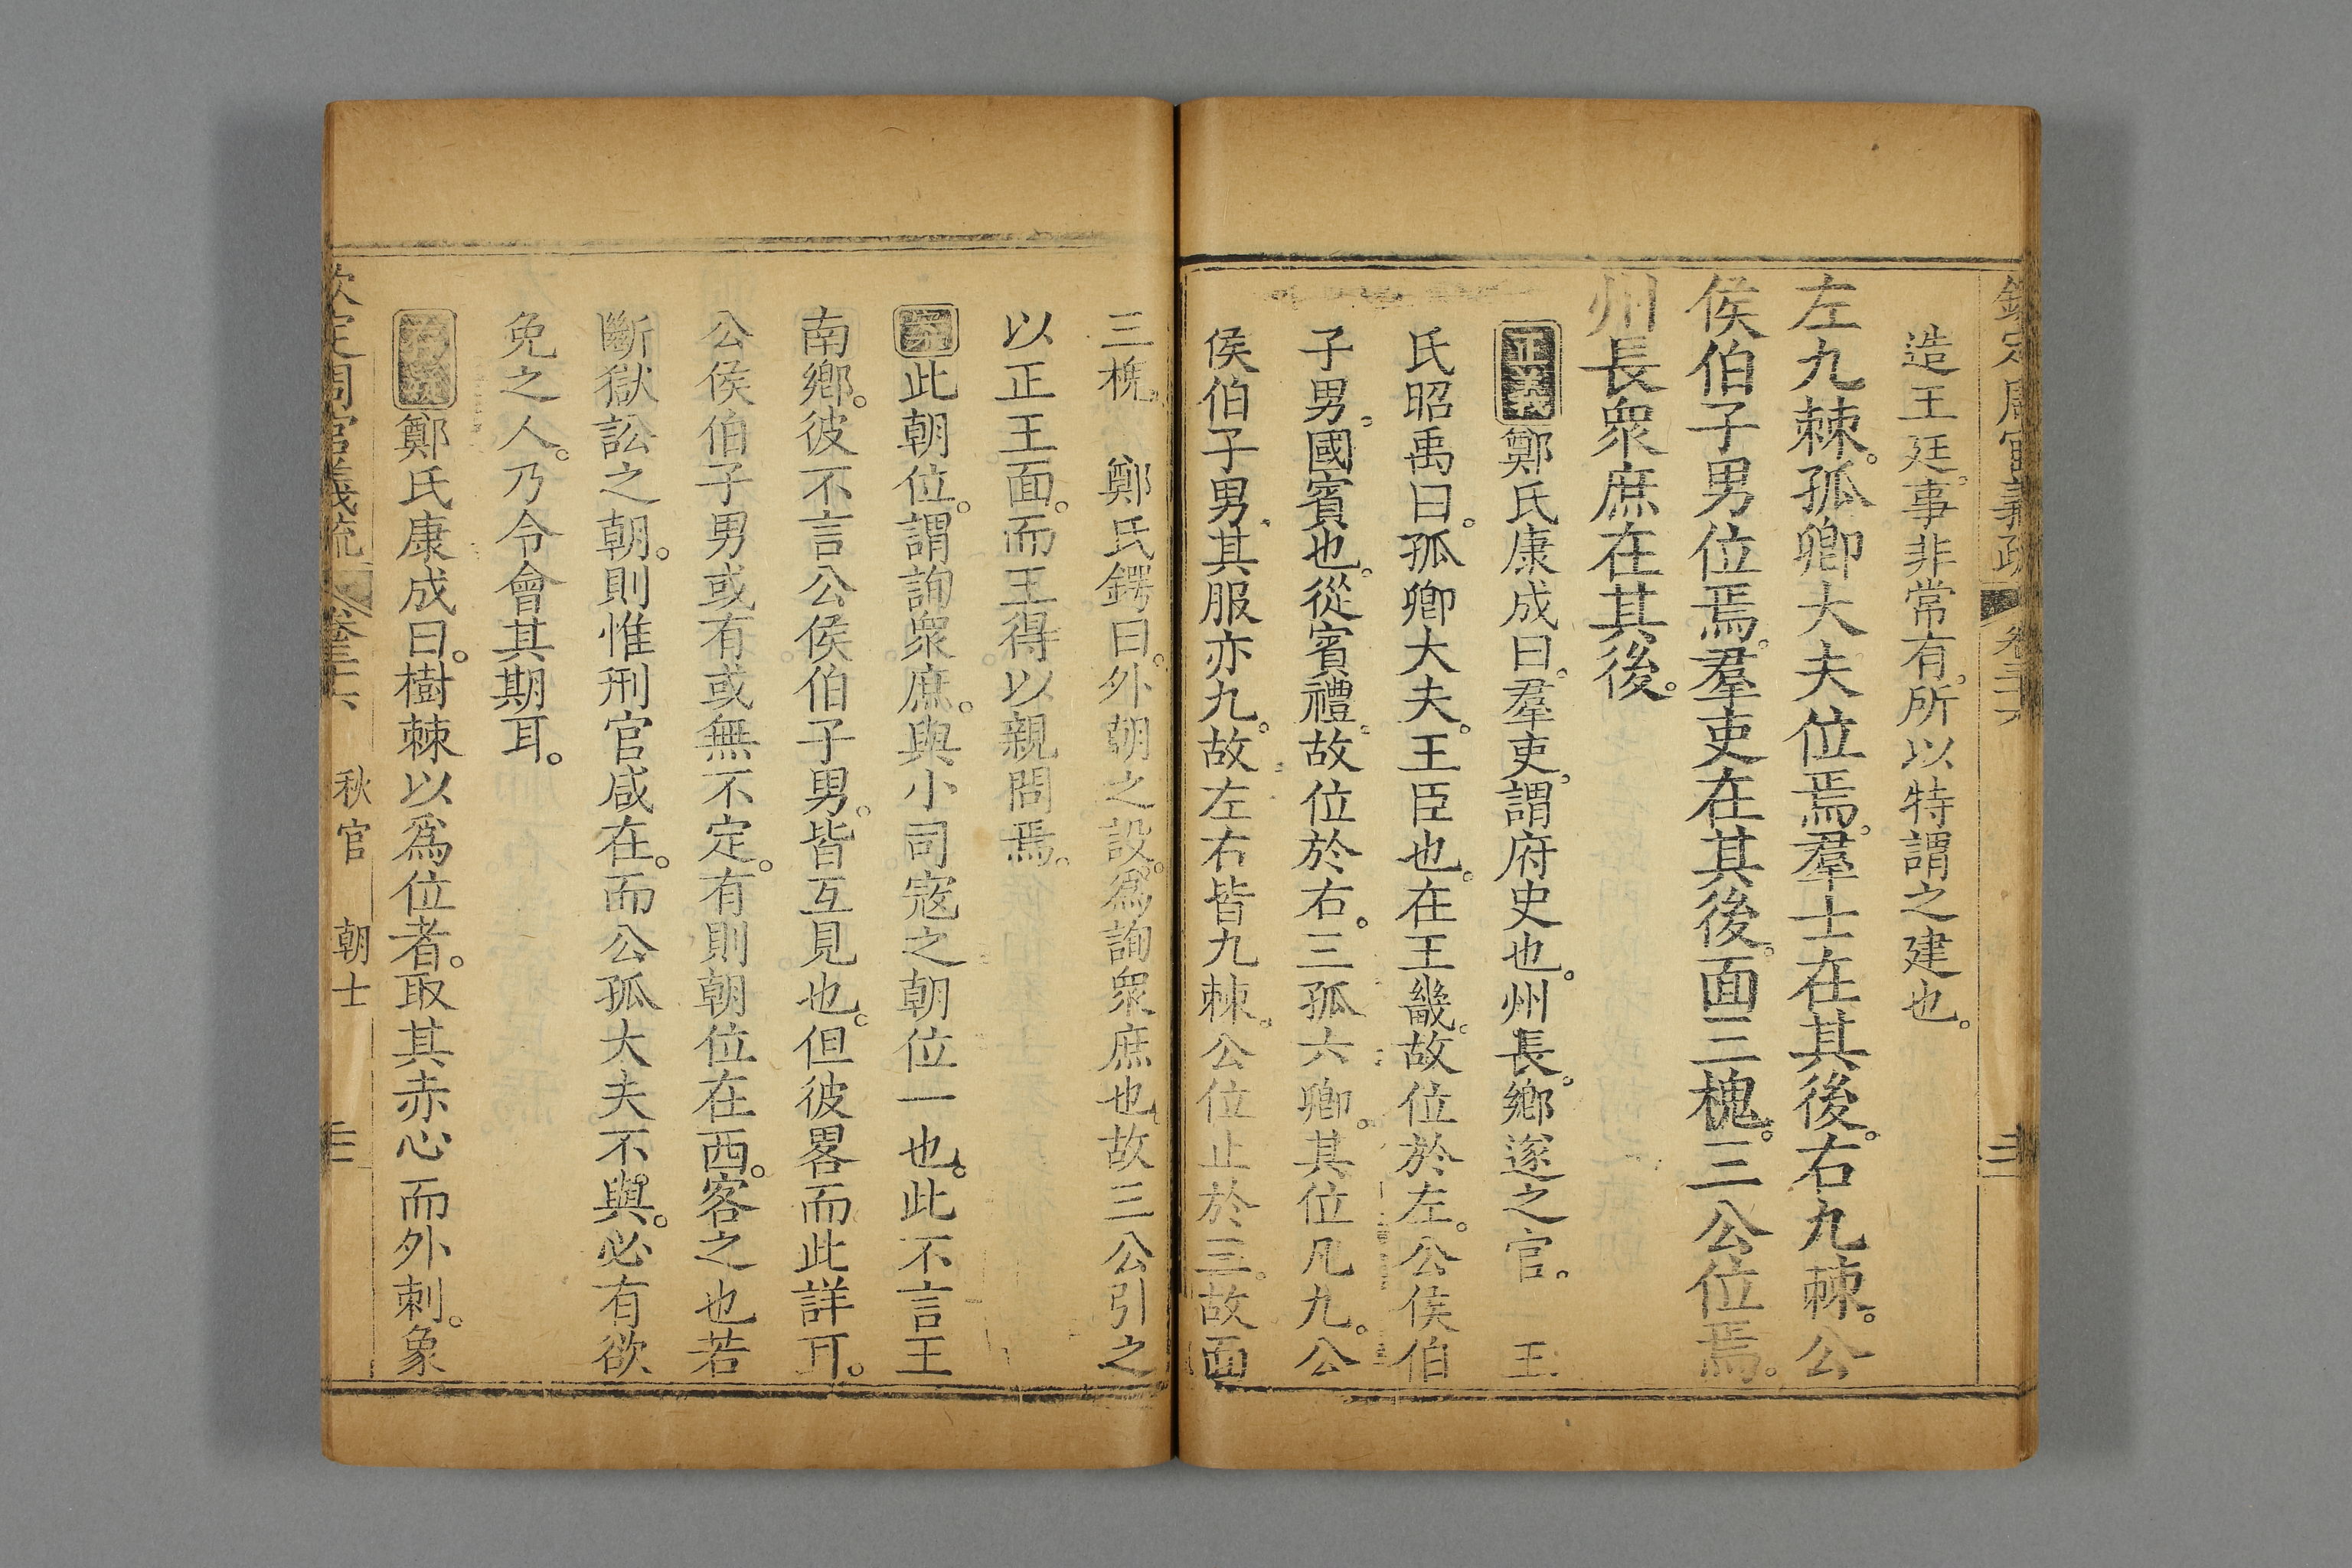 欽定周官義疏 卷三十六 三
造王廷。事非常有。所以特謂之建也。
左九棘。孤卿大夫位焉。羣士在其後。右九棘。公
侯伯子男位焉。羣吏在其後。面三槐。三公位焉。
州長衆庶在其後。
正義鄭氏康成曰。羣吏。謂府史也。州長。鄉遂之官。 王
氏昭禹曰。孤卿大夫。王臣也。在王畿。故位於左。公侯伯
子男。國賓也。從賓禮。故位於右。三孤六卿。其位凡九。公
侯伯子男。其服亦九。故左右皆九棘。公位止於三。故面
三槐。 鄭氏鍔曰。外朝之設。爲詢衆庶也。故三公引之
以正王面。而王得以親問焉。
案此朝位。謂詢衆庶。與小司寇之朝位一也。此不言王
南鄉。彼不言公侯伯子男。皆互見也。但彼畧而此詳耳。
公侯伯子男或有或無不定。有則朝位在西。客之也若
斷獄訟之朝。則惟刑官咸在。而公孤大夫不與。必有欲
免之人。乃令會其期耳。
鄭氏康成曰。樹棘以爲位者。取其赤心而外刺。象
欽定周官義疏 卷三十六 秋官 朝士 三